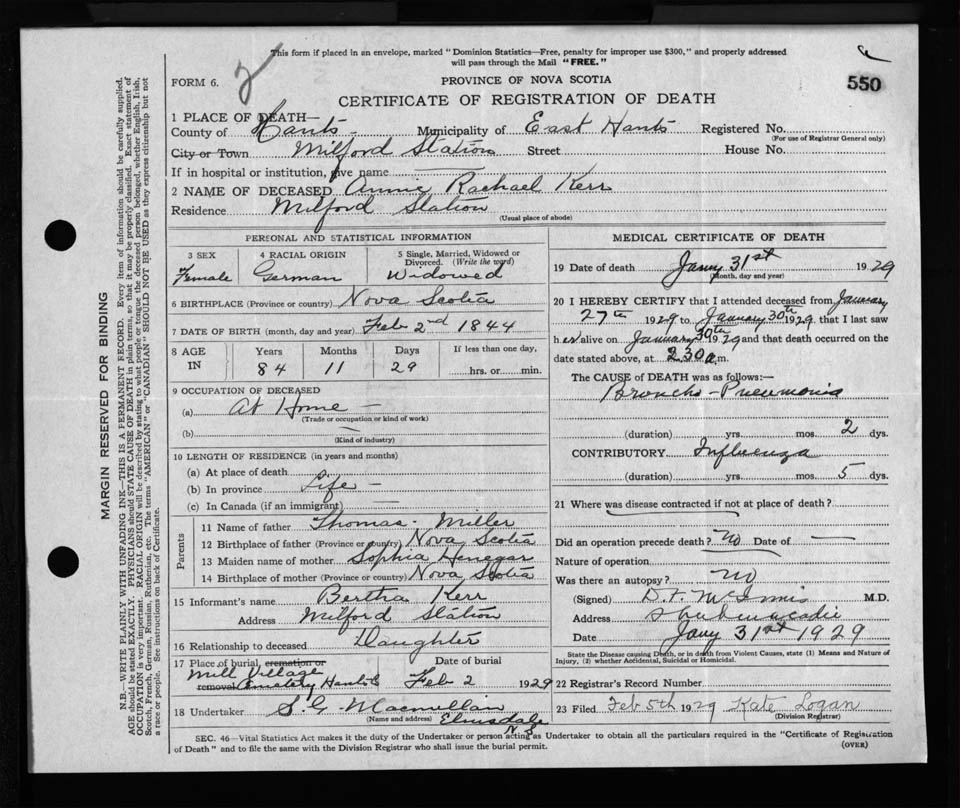 This form if placed in an envelope, marked "Dominion Statistics—Free, penalty for improper use $300," and properly addressed
will pass through the Mail "FREE."
FORM 6.
PROVINCE OF NOVA SCOTIA
550
CERTIFICATE OF REGISTRATION OF DEATH
1 PLACE OF DEATH—
County of Hants - Municipality of East Hants Registered No.
(For use of Registrar General only)
City or Town Milford Station Street House No.
If in hospital or institution, give name
2 NAME OF DECEASED Annie Rachael Kerr
Residence Milford Station
(Usual place of abode)
PERSONAL AND STATISTICAL INFORMATION
3 SEX 4 RACIAL ORIGIN 5 Single, Married, Widowed or Divorced. (Write the word)
Female German Widowed
6 BIRTHPLACE (Province or country) Nova Scotia
7 DATE OF BIRTH (month, day and year) Feb 2nd 1844
8 AGE IN Years Months Days If less than one day,
84 11 29 hrs. or min.
9 OCCUPATION OF DECEASED
(a) At Home -
(Trade or occupation or kind of work)
(b)
(Kind of industry)
10 LENGTH OF RESIDENCE (in years and months)
(a) At place of death
(b) In province Life -
(c) In Canada (if an immigrant)
Parents
11 Name of father Thomas Miller
12 Birthplace of father (Province or country) Nova Scotia
13 Maiden name of mother Sophia Henegar
14 Birthplace of mother (Province or country) Nova Scotia
15 Informant's name Bertha Kerr
Address Milford Station
16 Relationship to deceased Daughter
17 Place of burial, cremation or removal Date of burial
Mill Village
Cemetery, Hants Feb 2 1929
18 Undertaker S. G. Macmillan
(Name and address) Elmsdale
N.S.
MEDICAL CERTIFICATE OF DEATH
19 Date of death Jany 31st 1929
(Month, day and year)
20 I HEREBY CERTIFY that I attended deceased from January
27th 1929 to January 30th 1929 that I last saw
her alive on January 30th 1929 and that death occurred on the
date stated above, at 2.30 a.m.
The CAUSE of DEATH was as follows:—
Broncho-Pneumonia
(duration) yrs. mos. 2 dys.
CONTRIBUTORY Influenza
(duration) yrs. mos. 5 dys.
21 Where was disease contracted if not at place of death?
Did an operation precede death? No Date of
Nature of operation
Was there an autopsy? No
(Signed) D. F. McInnis M.D.
Address Shubenacadie
Date Jany 31st 1929
State the Disease causing Death, or in death from Violent Causes, state (1) Means and Nature of
Injury, (2) whether Accidental, Suicidal or Homicidal.
22 Registrar's Record Number
23 Filed Feb 5th 1929 Kate Logan
(Division Registrar)
SEC. 46—Vital Statistics Act makes it the duty of the Undertaker or person acting as Undertaker to obtain all the particulars required in the "Certificate of Registration
of Death" and to file the same with the Division Registrar who shall issue the burial permit.
(OVER)
MARGIN RESERVED FOR BINDING
N.B.—WRITE PLAINLY WITH UNFADING INK—THIS IS A PERMANENT RECORD. Every item of information should be carefully supplied.
AGE should be stated EXACTLY. PHYSICIANS should STATE CAUSE OF DEATH in plain terms, so that it may be properly classified. Exact statement of
OCCUPATION is very important. RACIAL ORIGIN will be described by stating to what people or tongue the deceased person belonged, whether English, Irish,
Scotch, French, German, Russian, Ruthenian, etc. The terms "AMERICAN" or "CANADIAN" SHOULD NOT BE USED as they express citizenship but not
a race or people. See instructions on back of Certificate.